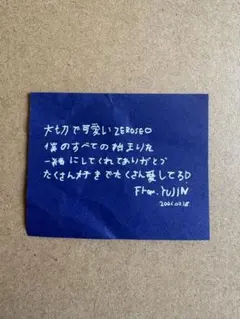 大切で可愛いZEROSEO
僕のすべての始まりを
一緒にしてくれてありがとう
たくさんすきでたくさん愛してる♡
From. YUJIN